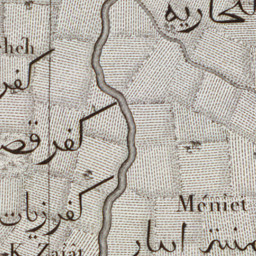 النحارية
heh
كفر
كفر قص
كفر زيات
K. Zaiat
Méniet
منية ابيار